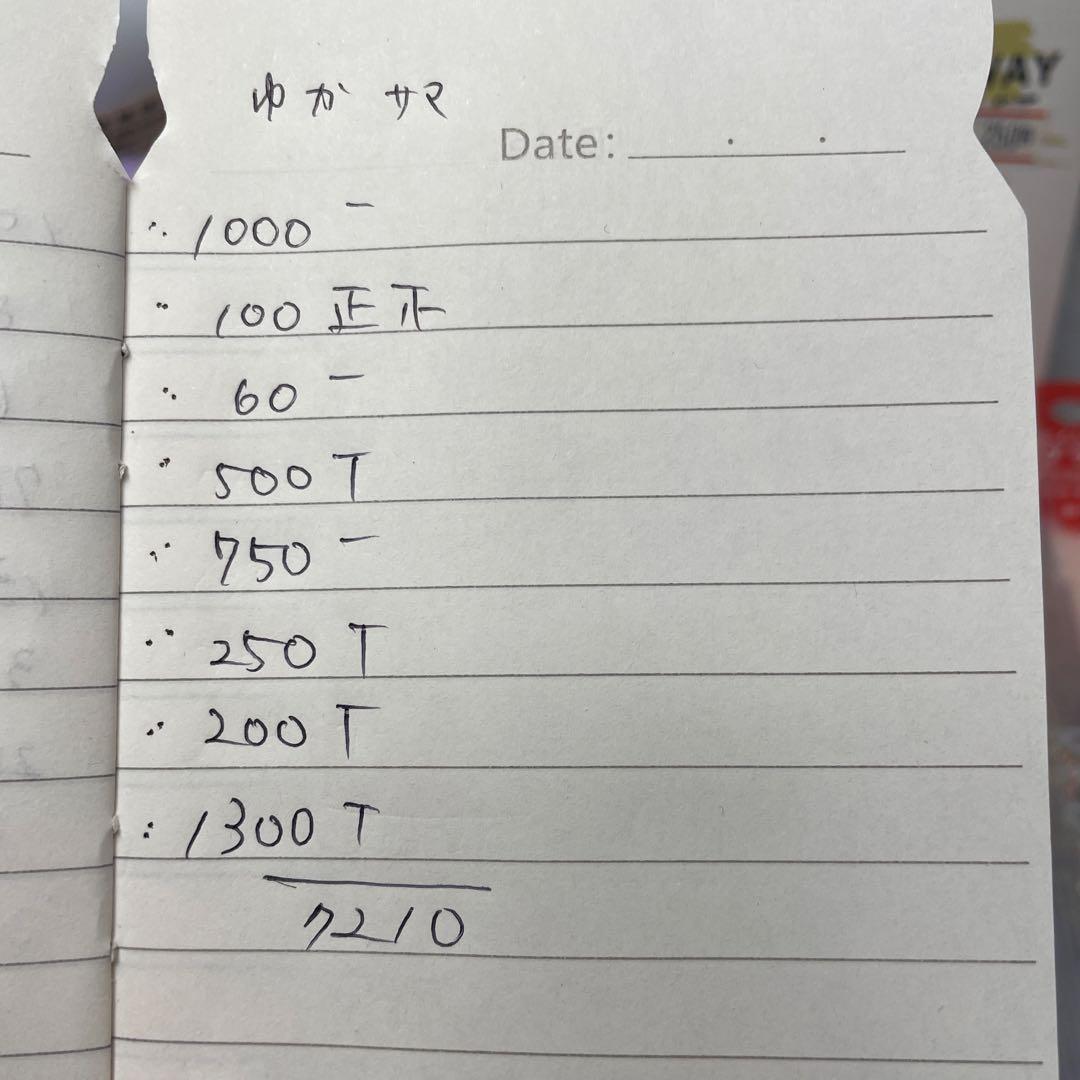 ゆか゛サマ
Date:
1000 一
100 正𝍵
60 一
500 T
750 一
250 T
200 T
1300 T
7210